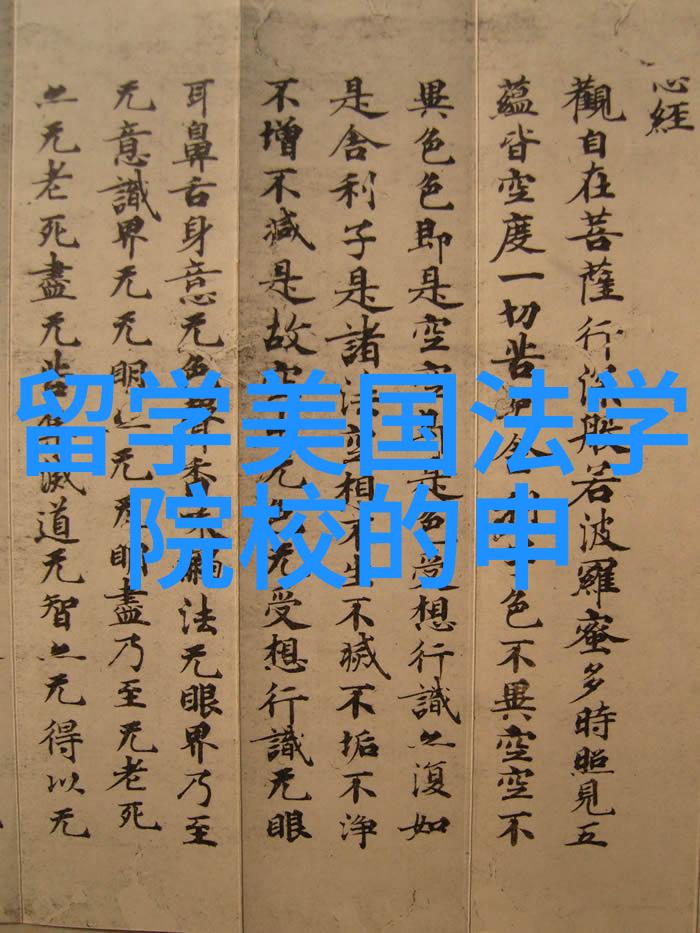 心經
觀自在菩薩行深般若波羅蜜多時照見五
蘊皆空度一切苦舍子色不異空空不
異色色即是空空即是色受想行識亦復如
是舍利子是諸法空想不生不滅不垢不淨
不增不減是故空无色无受想行識无眼
耳鼻舌身意无色聲香味觸法无眼界乃至
无意識界无无明亦无无明盡乃至无老死
亦无老死盡无苦集滅道无智亦无得以无
留学美国法学
院校的申